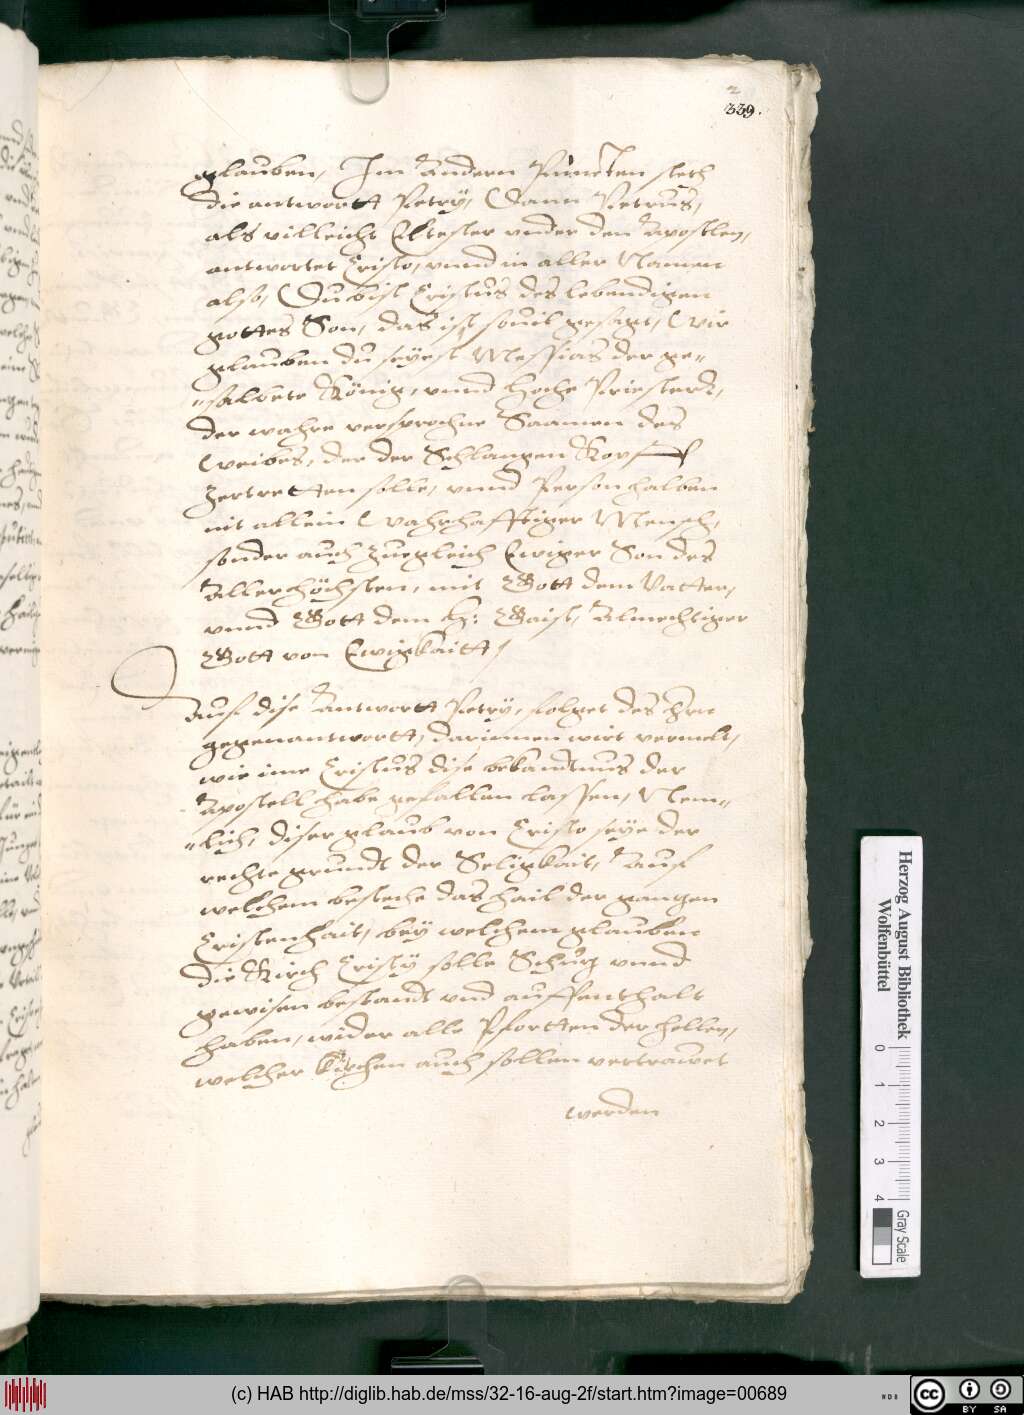 2
339.
glauben, Im Andern Puncten steth
die antwortt Petry, Dann Petrus,
als villeicht Eltester vnder den Apostlen,
antwortet Cristo, vnnd in aller Namen
also, Du bist Cristus des lebendigen
gottes Son, das ist souil gesagt, Wir
glauben du seyest Messias der ge„
„salbete König, vnnd hoche Priester,
der wahre versprochne Saamen des
Weibes, der der Schlangen Kopff
Zertretten solle, vnnd Person halben
nit allein Wahrhafftiger Mensch,
sonder auch zuegleich Ewiger Son des
Allerhöchsten, mit Gott dem Vatter,
vnnd Gott dem H: Gaist, Almechtiger
Gott von Ewigkaitt /
Auf dise Antwortt Petry, folget des Hern
gegenantwortt, darinnen wirt vermelt,
wie ime Cristus dise bekandtnus der
Apostell habe gefallen lassen, Nem„
„lich, diser glaub von Cristo seye der
rechte grundt der Seligkait, Auf
welchem bestehe das hail der ganzen
Cristenhait, bey welchem glauben
die Kirch Cristy solle Schuz vnnd
gewisen bestandt vnd auffenthalt
haben, wider alle Pfortten der hellen,
welcher Kirchen auch sollen vertrawet
werden
Herzog August Bibliothek
Wolfenbüttel
0 1 2 3 4
Gray Scale
(c) HAB http://diglib.hab.de/mss/32-16-aug-2f/start.htm?image=00689
cc BY SA